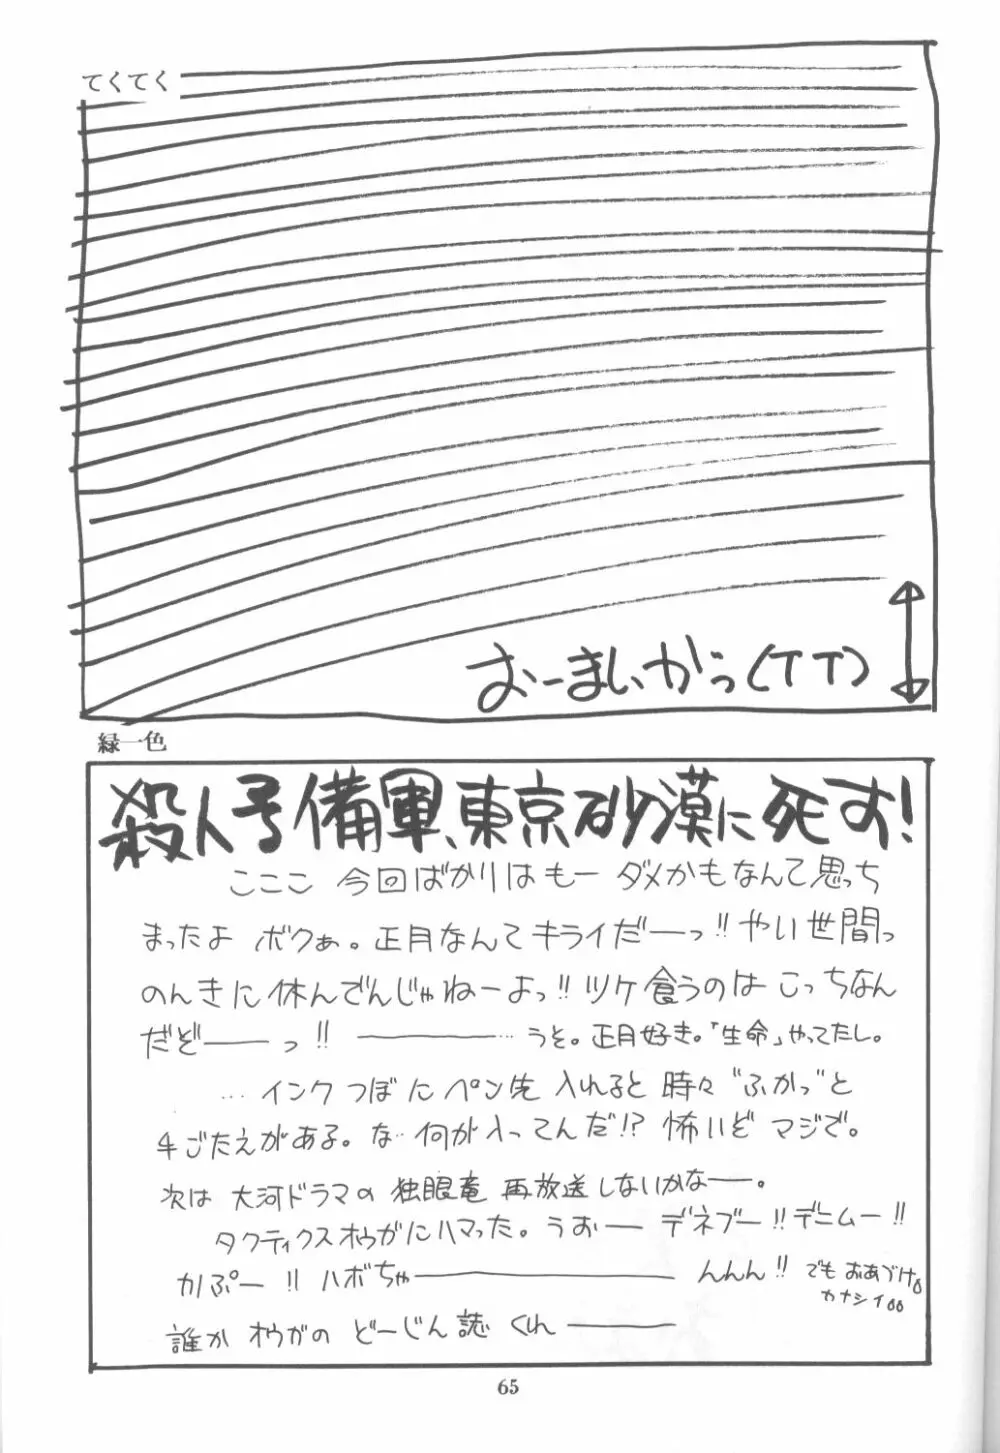 てくてく
おーまいがっ(TT)
緑一色
殺人予備軍、東京砂漠に死す!
こここ 今回ばかりはもー ダメかもなんて思っち
まったよ ボクぁ。正月なんてキライだーっ!!やい世間っ
のんきに休んでんじゃねーよっ!!ツケ食うのは こっちなん
だぞーっ!! ――…うそ。正月好き。「生命」やってたし。
…インクつぼに ペン先 入れると 時々 "ふかっ"と
手ごたえがある。な…何が入ってんだ!? 怖いぞ マジで。
次は 大河ドラマの 独眼竜 再放送しないかなー。
タクティクスオウガにハマった。うおー デネブー!!デニムー!!
かぷー!! ハボちゃーんんん!! でも おあづけ。
カナシイ。。
誰か オウガの どーじん誌 くれー
65